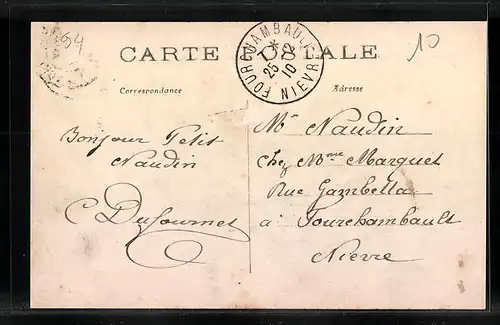 64
10
CARTE POSTALE
FOURCHAMBAULT
25 12
10
NIEVRE
Correspondance
Adresse
Bonjour Petit
Naudin
C Dufournet
Mr Naudin
Chez Mme Marquet
Rue Gambetta
à Fourchambault
Nievre